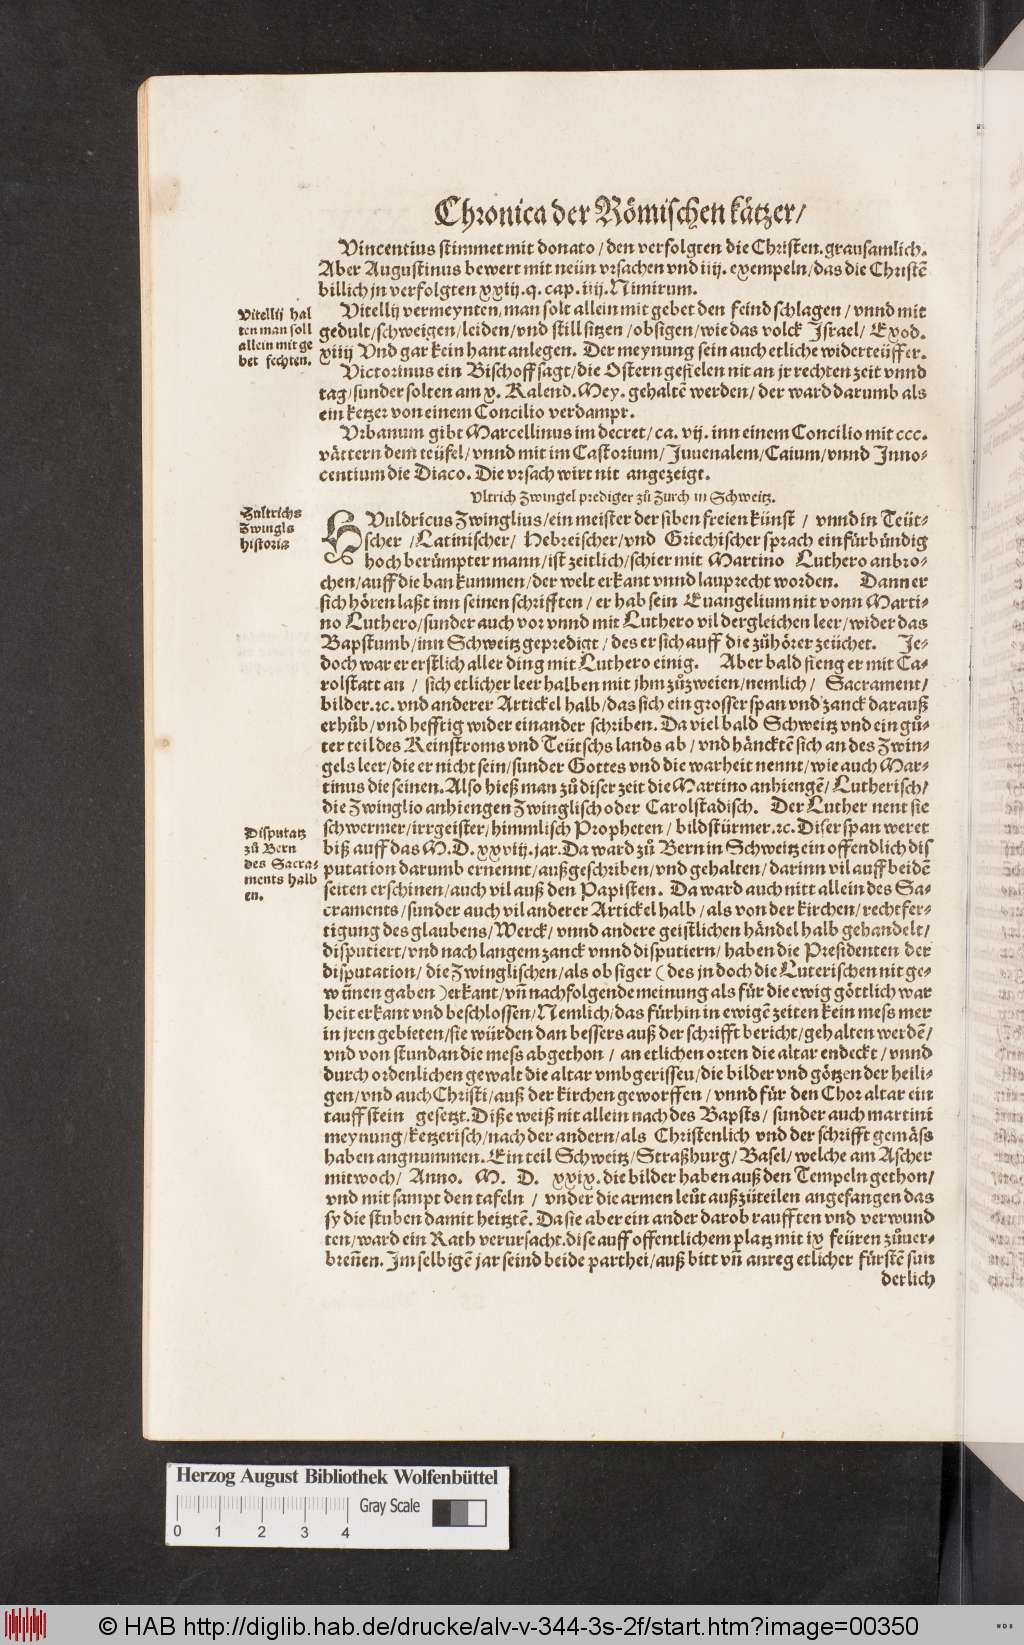 Chronica der Römischen kätzer/
Vincentius stimmet mit donato/den verfolgten die Christen.grausamlich.
Aber Augustinus bewert mit neün vrsachen vnd iiij. exempeln/das die Christē
billich jn verfolgten xxiij.q. cap. iiij.Nimirum.
Vitellij hal
ten man soll
allein mit ge
bet fechten.
Vitellij vermeynten/man solt allein mit gebet den feind schlagen/vnnd mit
gedult/schweigen/leiden/vnd still sitzen/obsigen/wie das volck Israel/ Exod.
xiiij Vnd gar kein hant anlegen. Der meynung sein auch etliche widerteüffer.
Victorinus ein Bischoff sagt/die Ostern gefielen nit an jr rechten zeit vnnd
tag/sunder solten am x. Kalend.Mey. gehaltē werden/der ward darumb als
ein ketzer von einem Concilio verdampt.
Vrbanum gibt Marcellinus im decret/ca. vij. inn einem Concilio mit ccc.
vättern dem teüfel/vnnd mit im Castorium/Juuenalem/Caium/vnnd Inno-
centium die Diaco. Die vrsach wirt nit angezeigt.
Vltrich Zwingel prediger zů Zurch in Schweitz.
Hultrichs
Zwingls
historia
HVuldricus Zwinglius/ein meister der siben freien künst / vnnd in Teüt-
scher /Latinischer/ Hebreischer/vnd Griechischer sprach ein fürbündig
hoch berümpter mann/ist zeitlich/schier mit Martino Luthero anbro-
chen/auff die ban kummen/der welt erkant vnnd lautprecht worden. Dann er
sich hören laßt inn seinen schrifften / er hab sein Euangelium nit vonn Marti-
no Luthero/sunder auch vor vnnd mit Luthero vil dergleichen leer/wider das
Bapstumb/inn Schweitz gepredigt / des er sich auff die zühörer zeüchet. Je-
doch war er erstlich aller ding mit Luthero einig. Aber bald fieng er mit Ca-
rolstatt an / sich etlicher leer halben mit jhm zůzweien/nemlich/ Sacrament/
bilder.ꝛc. vnd anderer Artickel halb/das sich ein grosser span vnd zanck darauß
erhůb/vnd hefftig wider einander schriben. Da viel bald Schweitz vnd ein gů-
ter teil des Reinstroms vnd Teütschs lands ab / vnd häncktē sich an des Zwin-
gels leer/die er nicht sein/sunder Gottes vnd die warheit nennt/wie auch Mar-
tinus die seinen.Also hieß man zů diser zeit die Martino anhiengē/Lutherisch/
die Zwinglio anhiengen Zwinglisch oder Carolstadisch. Der Luther nent sie
Disputatz
zů Bern
des Sacra-
ments halb
en.
schwermer/irrgeister/himmlisch Propheten / bildstürmer.ꝛc. Diser span weret
biß auff das M.D.xxviij.jar.Da ward zů Bern in Schweitz ein offendlich dis
putation darumb ernennt/außgeschriben/vnd gehalten/darinn vil auff beidē
seiten erschinen/auch vil auß den Papisten. Da ward auch nitt allein des Sa-
craments/sunder auch vil anderer Artickel halb/als von der kirchen/rechtfer-
tigung des glaubens/Werck/vnnd andere geistlichen händel halb gehandelt/
disputiert/vnd nach langem zanck vnnd disputiern/haben die Presidenten der
disputation/die Zwinglischen/als obsiger (des jn doch die Luterischen nit ge-
wūnen gaben )erkant/vñ nachfolgende meinung als für die ewig göttlich war
heit erkant vnd beschlossen/Nemlich/das fürhin in ewigē zeiten kein mess mer
in jren gebieten/sie würden dan bessers auß der schrifft bericht/gehalten werdē/
vnd von stundan die mess abgethon / an etlichen orten die altar endeckt/vnnd
durch ordenlichen gewalt die altar vmbgerissen/die bilder vnd götzen der heili-
gen/vnd auch Christi/auß der kirchen geworffen / vnnd für den Chor altar ein
tauff stein gesetzt.Diße weiß nit allein nach des Bapsts/ sunder auch martini
meynung/ketzerisch/nach der andern/als Christenlich vnd der schrifft gemäss
haben angnummen.Ein teil Schweitz/Straßburg/Basel/welche am Ascher
mitwoch/ Anno. M. D. xxix.die bilder haben auß den Tempeln gethon/
vnd mit sampt den tafeln / vnder die armen leůt außzüteilen angefangen das
sy die stuben damit heitztē. Da sie aber ein ander darob raufften vnd verwund
ten/ward ein Rath verursacht.dise auff offentlichem platz mit ix feüren zůuer-
breñen. Im selbigē jar seind beide parthei/auß bitt vñ anreg etlicher fürstē sun
derlich
Herzog August Bibliothek Wolfenbüttel
Gray Scale
0 1 2 3 4
© HAB http://diglib.hab.de/drucke/alv-v-344-3s-2f/start.htm?image=00350